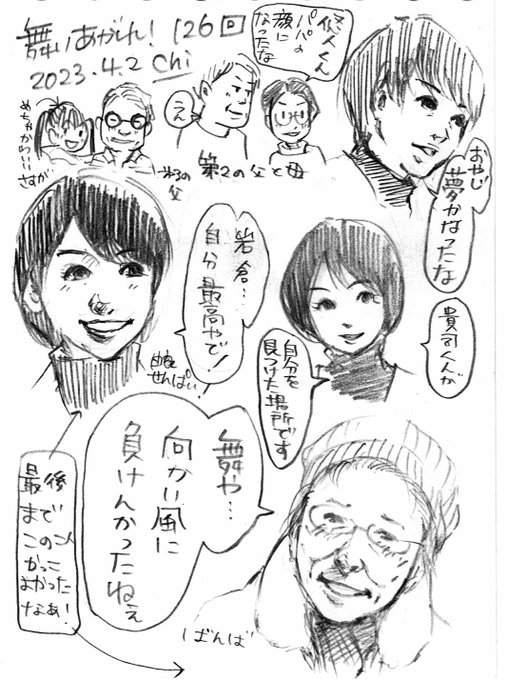 舞いあがれ! 126回
2023.4.2 chi
悠人くん
パパの
顔に
なったな
めちゃかわいい
さすが
うん
第3の
父
第2の父と母
おやじ
夢かなったな
岩倉…
自分最高やで!
由良
せんぱい!
貴司くんが
自分を
見つけた場所です
舞や…
向かい風に
負けんかったねぇ
最後
まで
このこ
かっこ
よかった
なぁ!
ばんば